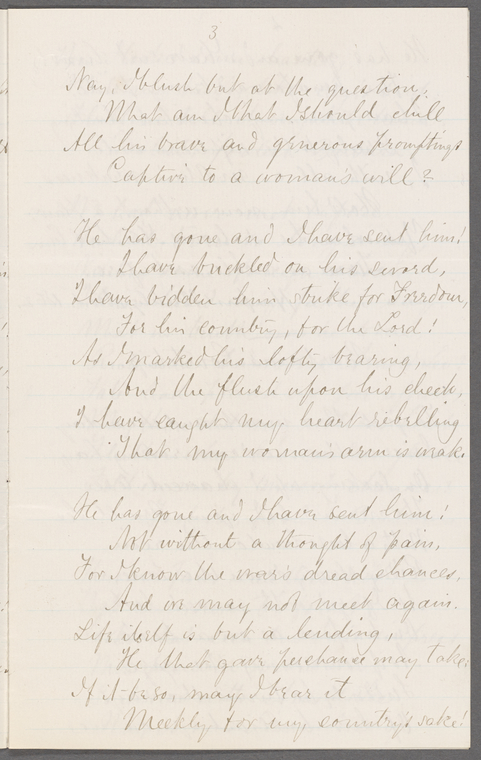 3
Nay, I blush but at the question,
What am I that I should chill
All his brave and generous promptings
Captive to a woman's will?
He has gone and I have sent him!
I have buckled on his sword,
I have bidden him strike for Freedom,
For his country, for the Lord!
As I marked his lofty bearing,
And the flush upon his cheek,
I have caught my heart rebelling
That my woman's arm is weak.
He has gone and I have sent him!
Not without a thought of pain,
For I know the war's dread chances,
And we may not meet again.
Life itself is but a lending,
He that gave perchance may take
If it be so, may I bear it
Meekly for my country's sake!